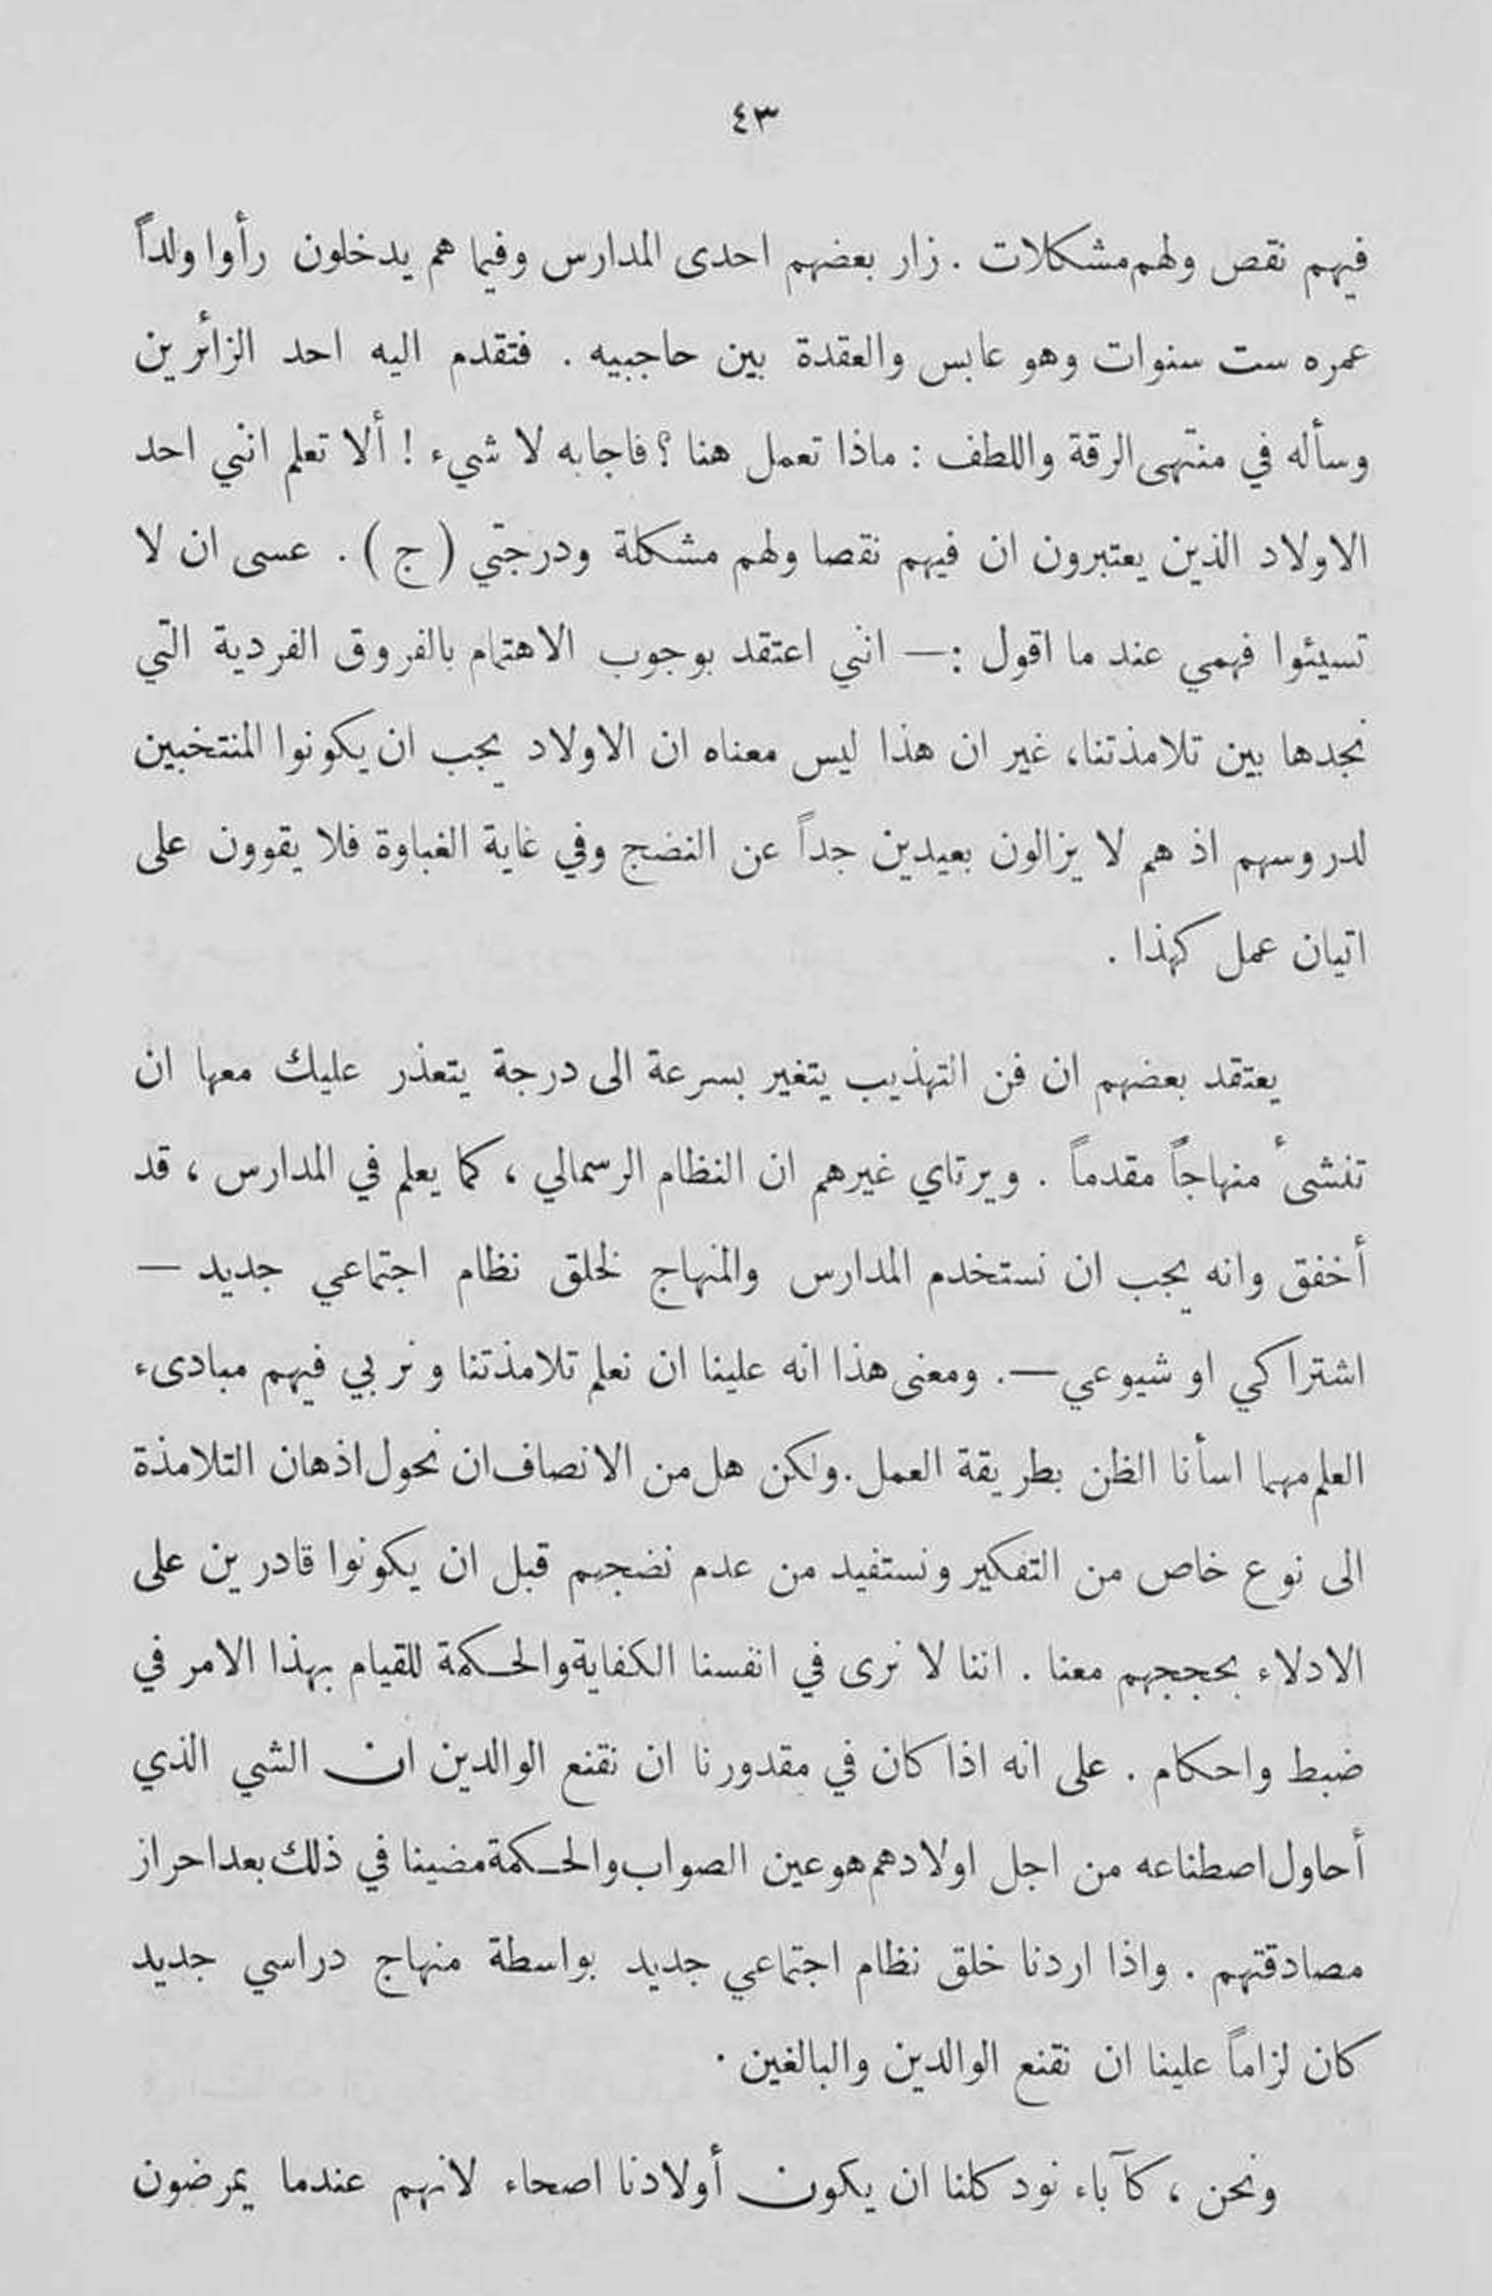 ٤٣
فيهم نقص ولهم مشكلات . زار بعضهم احدى المدارس وفيما هم يدخلون رأوا ولداً
عمره ست سنوات وهو عابس والعقدة بين حاجبيه . فتقدم اليه احد الزائرين
وسأله في منتهى الرقة واللطف : ماذا تعمل هنا ؟ فاجابه لا شيء ! ألا تعلم انني احد
الاولاد الذين يعتبرون ان فيهم نقصا ولهم مشكلة ودرجتي ( ج ) . عسى ان لا
تسيئوا فهمي عند ما اقول :— انني اعتقد بوجوب الاهتمام بالفروق الفردية التي
نجدها بين تلامذتنا، غير ان هذا ليس معناه ان الاولاد يجب ان يكونوا المنتخبين
لدروسهم اذ هم لا يزالون بعيدين جداً عن النضج وفي غاية الغباوة فلا يقوون على
اتيان عمل كهذا .
يعتقد بعضهم ان فن التهذيب يتغير بسرعة الى درجة يتعذر عليك معها ان
تنشئ منهاجاً مقدماً . ويرتاي غيرهم ان النظام الرسمالي ، كما يعلم في المدارس ، قد
أخفق وانه يجب ان نستخدم المدارس والمنهاج لخلق نظام اجتماعي جديد —
اشتراكي او شيوعي —. ومعنى هذا انه علينا ان نعلم تلامذتنا ونربي فيهم مبادىء
العلم مهما اسأنا الظن بطريقة العمل . ولكن هل من الانصاف ان نحول اذهان التلامذة
الى نوع خاص من التفكير ونستفيد من عدم نضجهم قبل ان يكونوا قادرين على
الادلاء بحججهم معنا . اننا لا نرى في انفسنا الكفاية والحكمة للقيام بهذا الامر في
ضبط واحكام . على انه اذا كان في مقدورنا ان نقنع الوالدين ان الشي الذي
أحاول اصطناعه من اجل اولادهم هو عين الصواب والحكمة مضينا في ذلك بعد احراز
مصادقتهم . واذا اردنا خلق نظام اجتماعي جديد بواسطة منهاج دراسي جديد
كان لزاماً علينا ان نقنع الوالدين والبالغين .
ونحن ، كآباء نود كلنا ان يكون أولادنا اصحاء لانهم عندما يمرضون